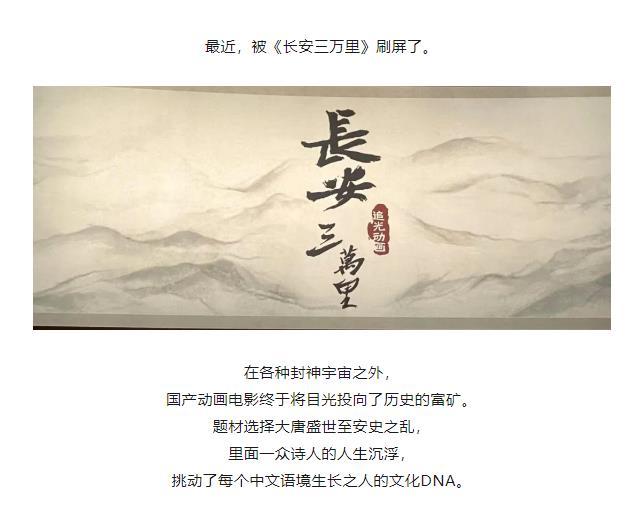 最近，被《长安三万里》刷屏了。
長
安
三
萬
里
追光动画
在各种封神宇宙之外，
国产动画电影终于将目光投向了历史的富矿。
题材选择大唐盛世至安史之乱，
里面一众诗人的人生沉浮，
挑动了每个中文语境生长之人的文化DNA。